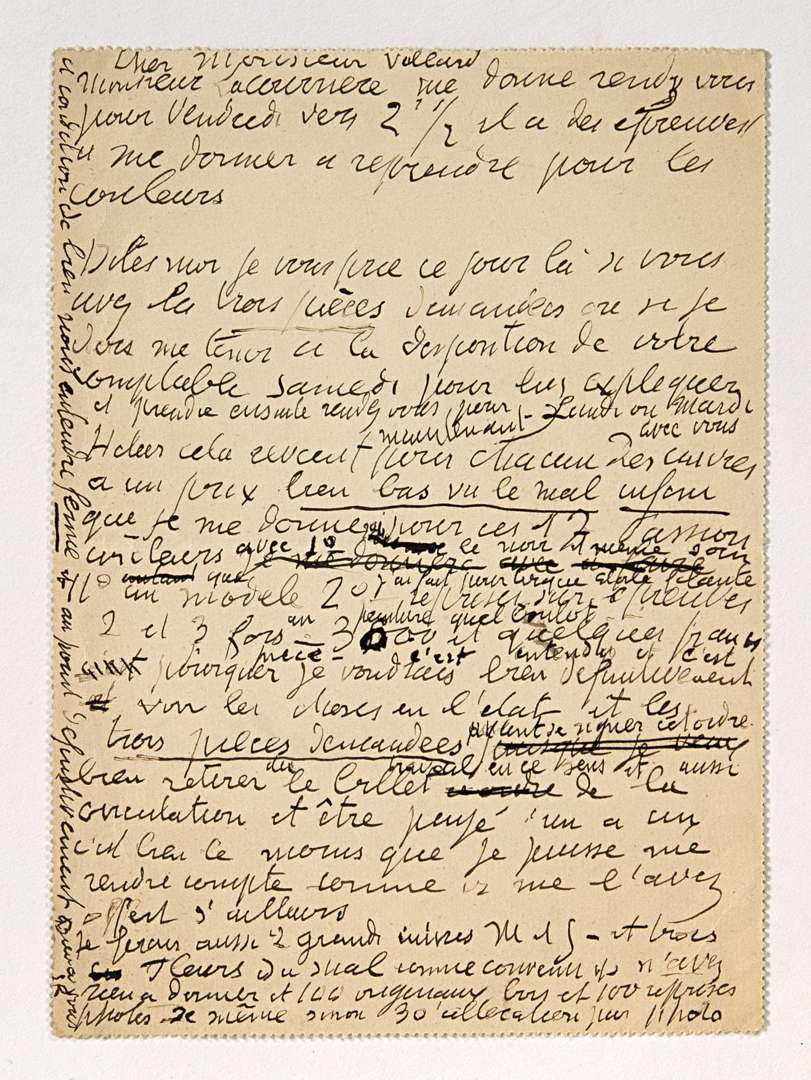 Cher Monsieur Vollard
Monsieur Lacourière me donne rendez vous
pour Vendredi vers 2 h 1/2 il a des épreuves
à me donner a reprendre pour les
couleurs
Dites moi je vous prie ce jour là si vous
avez la trois pièces demandées ou si je
dois me tenir a la disposition de votre
comptable samedi pour lui expliquer
et prendre ensuite rendez vous pour Lundi ou Mardi
maintenant avec vous
cela revient pour chacun des cuivres
a un prix bien bas vu le mal
que je me donne pour ces 17 Passion
couleurs avec le noir et même
modèle
2 et 3 fois 3000 et quelques francs
pièce c'est entendu et c'est
pourquoi je voudrais bien définitivement
voir les choses en l'état et les
trois pièces demandées avant de signer cet ordre
du travail en ce sens et aussi
bien retirer le billet de la
circulation et être payé un a un
c'est bien le moins que je puisse me
rendre compte comme vs me l'avez
offert d'ailleurs
Je ferai aussi 2 grands cuivres M et G - et trois
Fleurs du mal comme convenu vs n'avez
rien a donner et 100 originaux bois et 100 reprises
photos de même sinon 30 par photo
a condition de bien nous entendre ferme et au point définitivement